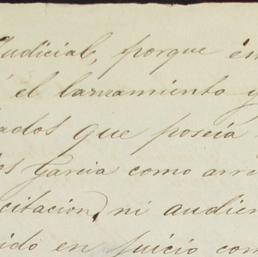 Judicial, porque en
el lanzamiento y
ados que poseia
os Garcia como arr
citacion, ni audien
ido en juicio com